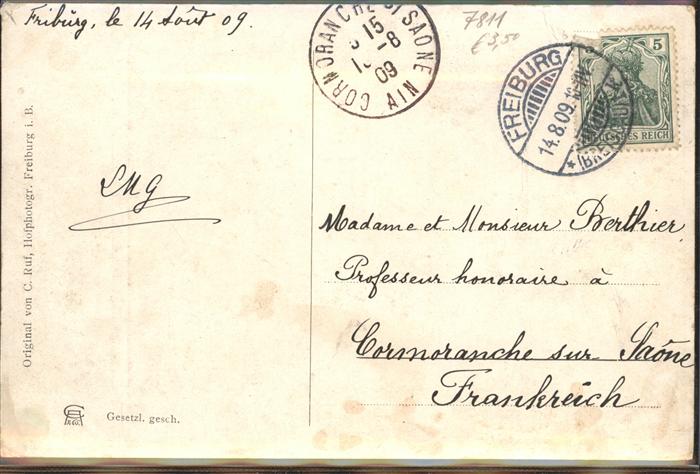 Fribürg, le 14 Août 09.
7811
€3,50
CORMORANCHE S/ SAONE AIN
15
-8
09
FREIBURG
14.8.09.
5
DEUTSCHES REICH
LMG
Madame et Monsieur Berthier
Professeur honoraire à
Cormoranche sur Saône
Frankreich
Original von C. Ruf, Hofphotogr. Freiburg i. B.
Gesetzl. gesch.